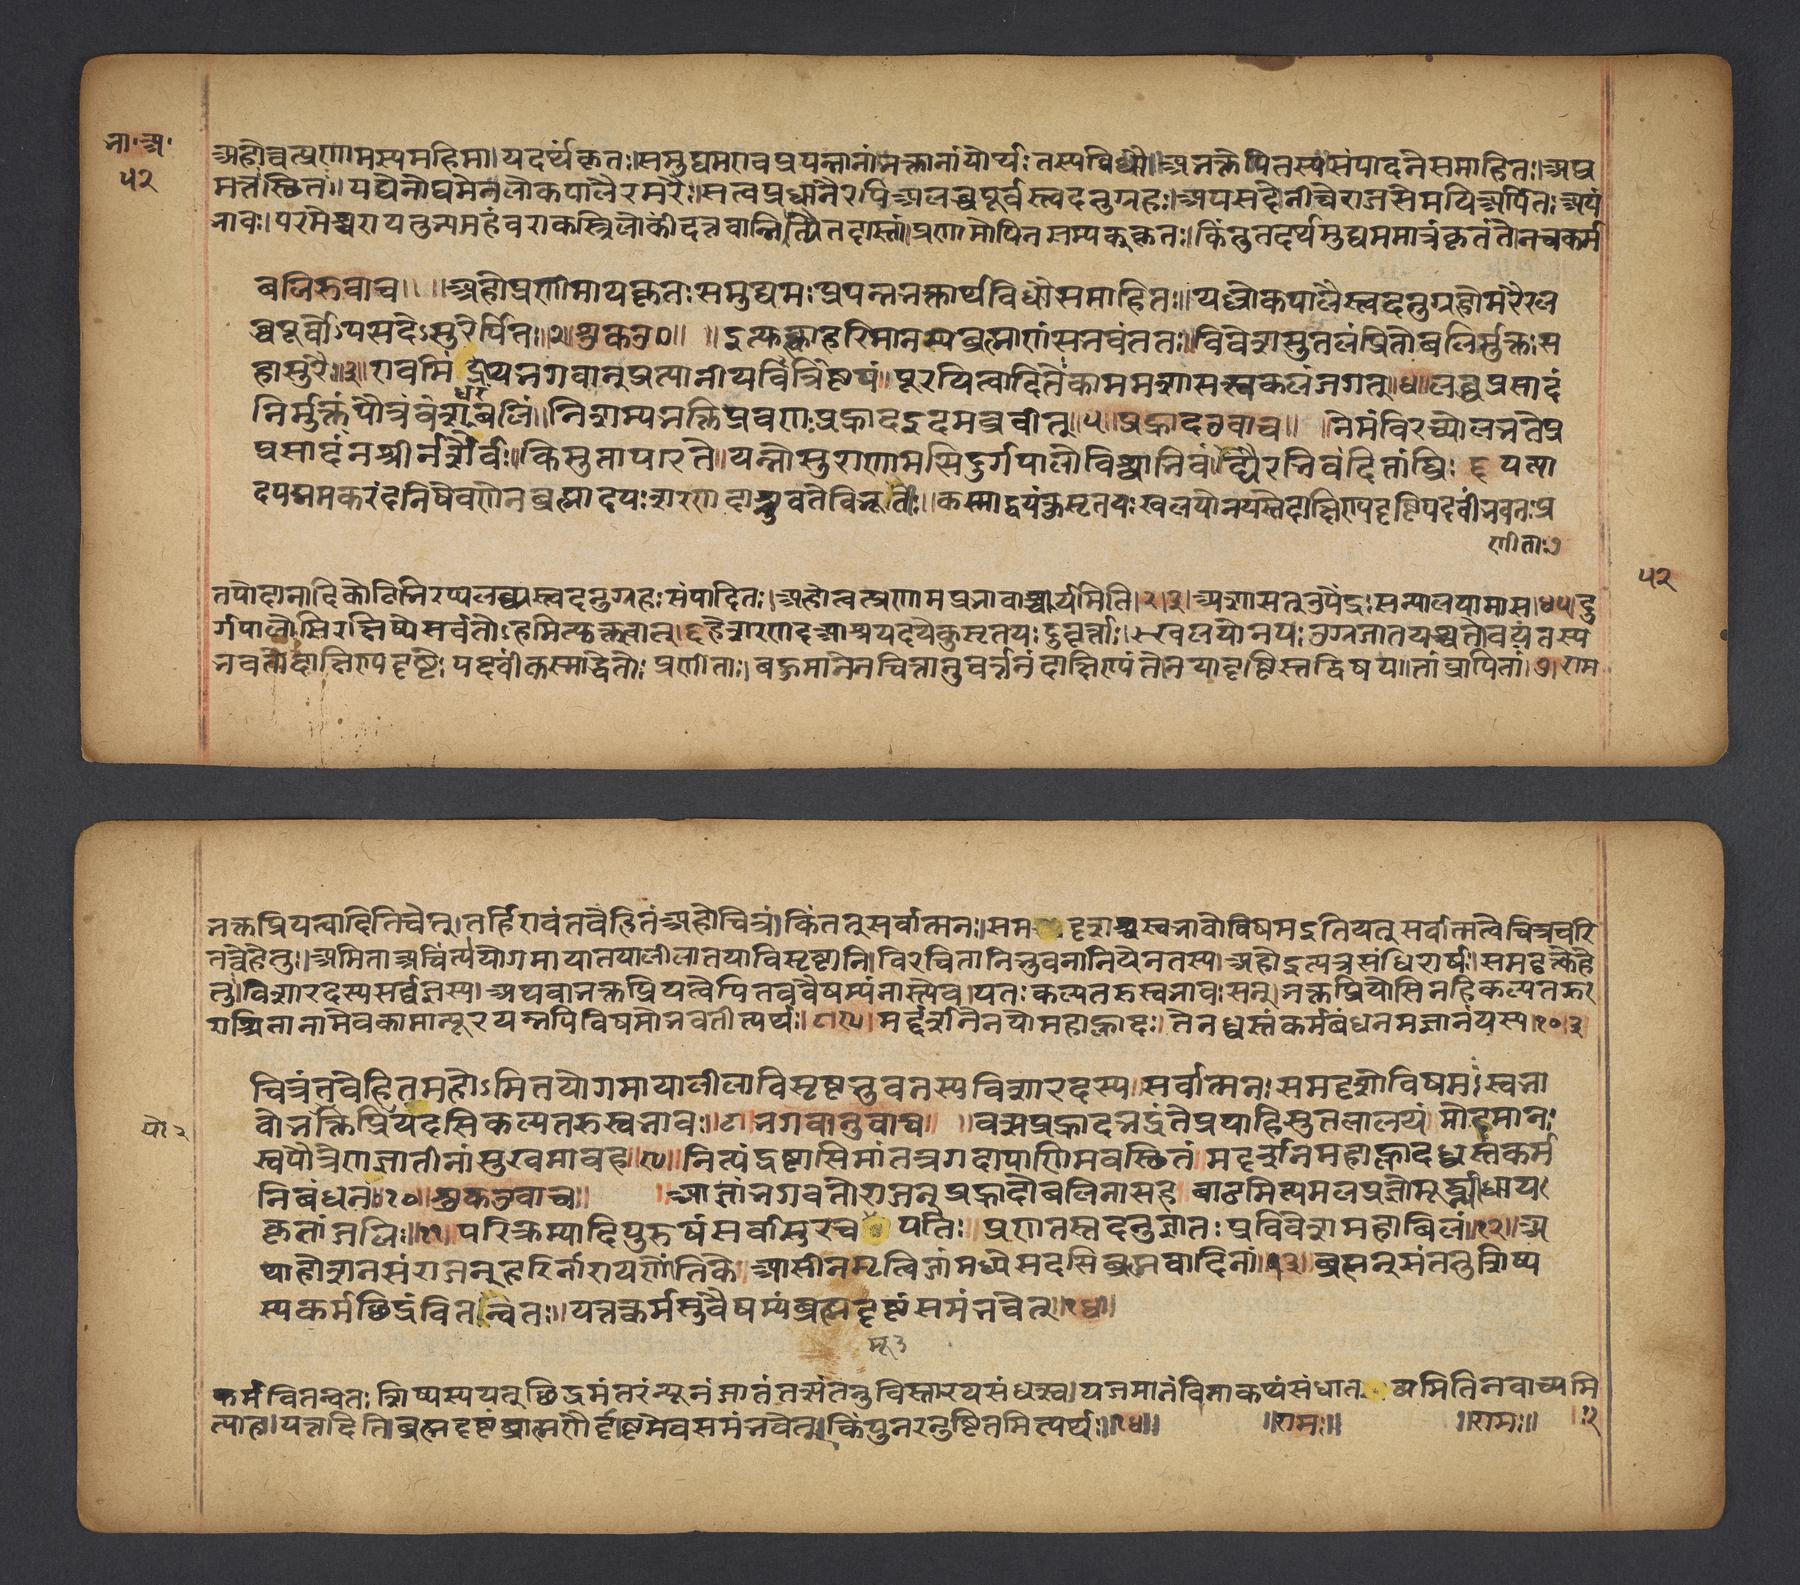 भा॰अ॰
५२
अहोत्वत्प्रणामस्यमहिमा।यदर्थंकृतः।समुद्यमएवप्रपन्नानां।भक्तानांयोर्थः।तस्यविधौ।अभक्तेपितस्यसंपादनेसमाहितः।अप्र
मत्तंस्थितं।।यद्येनोद्यमेनलोकपालैरमरैः।सत्वप्रधानैरपिअलब्धपूर्वस्त्वदनुग्रहः।अपसदेनीचेराजसेमयिअर्पितः।अयं
भावः।परमेश्वरायतुभ्यमहंवराकस्त्रिलोकींदत्तवानि
बलिरुवाच।।अहोप्रणामायकृतः समुद्यमः प्रपन्नभक्तार्थविधौसमाहितः।।यल्लोकपालैस्त्वदनुग्रहोमरैरल
ब्धपूर्वोऽपसदेऽसुरेर्पितः।।२।।शुकउ०।।इत्युक्त्वाहरिमानम्यब्रह्माणंसभवंततः।।विवेशसुतलंप्रीतोबलिर्मुक्तः स
हासुरैः।।३।।एवमिंद्रायभगवान्प्रत्यानीयत्रिविष्टपं।।पूरयित्वादितेःकाममशासत्सकलंजगत्।।४।।लब्धप्रसादं
निर्मुक्तंपौत्रंवंशधरंबलिं।।निशम्यभक्तिप्रवणःप्रह्रादइदमब्रवीत्।।५।।प्रह्रादउवाच।।नेमंविरंच्योलभतेप्र
प्रसादंनश्रीर्नशर्वः।।किमुतापरेते।।यन्नोसुराणामसिदुर्गपालोविश्वाभिवंद्यैरभिवंदितांघ्रिः ६ यत्पा
दपद्ममकरंदनिषेवणेनब्रह्मादयः शरणदाश्नुवतेविभूतीः।।कस्माद्वयंकुसृतयः खलयोनयस्तेदाक्षिण्यदृष्टिपदवींभवतः प्र
णीताः७
तपोदानादिकोटिभिरप्यलब्धस्त्वदनुग्रहः संपादितः।अहोत्वत्प्रणामप्रभावाश्चर्यमिति।२।३।अशासत्उपेंद्रः सन्पालयामास।४५।दु
र्गपालोसिरक्षिष्येसर्वतोऽहमित्युक्तत्वात्।६हेशरणदआश्रयदयेकुसृतयः दुर्वृत्ताः।खलयोनयः उग्रजातयश्चतेवयंतस्य
भवतोदाक्षिण्यदृष्टेः पदवींकस्माद्धेतोः प्रणीताः।बहुमानेनचित्तानुवर्त्तनंदाक्षिण्यंतेनयादृष्टिस्तद्विषय।।तांप्रापिताः।७।राम
५२
भक्तप्रियत्वादितिचेत्।तर्हिएवंतवेहितंअहोचित्रं।किंतत्सर्वात्मनः।समदृशश्चस्वभावोविषमइतियत्सर्वात्मत्वेचित्रचरि
तत्वेहेतुः।अमिताअचिंत्यायोगमायातयालीलातयाविसृष्टानि।विरचितानिभुवनानियेनतस्य।अहोइत्यत्रसंधिरार्षः।समदृक्त्वेहे
तुः।विशारदस्यसर्वज्ञस्य।अथवाभक्तप्रियत्वेपितववैषम्यंनास्त्येव।यतः कल्पतरुस्वभावः सन्।भक्तप्रियोसिनहिकल्पतरुः
आश्रितानामेवकामान्पूरयन्नपिविषमोभवतीत्यर्थः।८।९।मद्दर्शनेनयोमहाह्लादः।तेनध्वस्तंकर्मबंधनमज्ञानंयस्य।१०।३
चित्रंतवेहितमहोऽमितयोगमायालीलाविसृष्टभुवनस्यविशारदस्य।सर्वात्मनः समदृशोविषमः स्वभा
वोभक्तिप्रियोयदसिकल्पतरुस्वभावः।।८।।भगवानुवाच।।वत्सप्रह्रादभद्रंतेप्रयाहिसुतलालयं मोदमानः
स्वपौत्रेणज्ञातीनांसुखमावह।।९।।नित्यंद्रष्टासिमांतत्रगदापाणिमवस्थितं मद्दर्शनमहाह्लादध्वस्तकर्म
निबंधनः१०।।शुकउवाच।।आज्ञांभगवतोराजन्प्रह्रादोबलिनासह बाढमित्यमलप्रज्ञोमूर्ध्न्याधाय
कृतांजलिः।।११।।परिक्रम्यादिपुरुषंसर्वासुरचमूपतिः।।प्रणतस्तदनुज्ञातः प्रविवेशमहाबिलं।।१२।।अ
थाहोशनसंराजन्हरिर्नारायणोंतिके।आसीनमृत्विजांमध्येसदसिब्रह्मवादिनां।१३।।ब्रह्मन्संतनुशिष्य
स्यकर्मछिद्रंवितन्वतः।।यत्तत्कर्मसुवैषम्यंब्रह्मदृष्टंसमंभवेत्।।१४।।
कर्मवितन्वतः शिष्यस्ययत्छिद्रमंतरंन्यूनंजातंतत्संतनुविस्तारयसंधत्स्व।यजमानंविनाकथंसंधातव्यमितिनवाच्यमि
त्याह।यत्तदिति।ब्रह्मदृष्टंब्राह्मणैर्दृष्टमेवसमंभवेत्।किंपुनरनुष्ठितमित्यर्थः।।१४।।।।रामः।।।।रामः।।